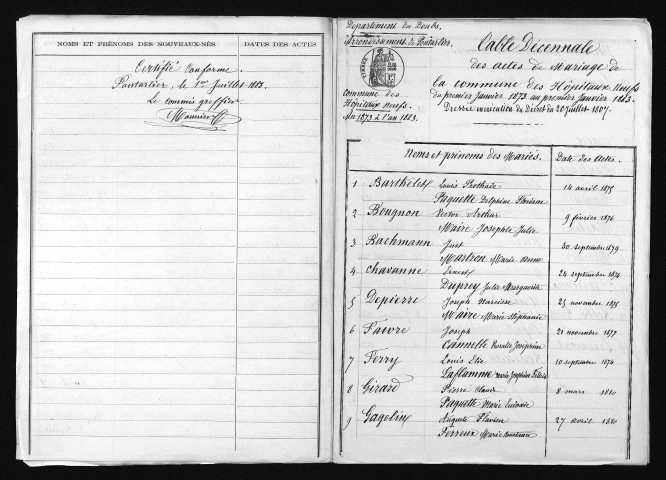 NOMS ET PRÉNOMS DES NOUVEAUX-NÉS
DATES DES ACTES
Certifié Conforme
Pontarlier, le 1er Juillet 1883.
Le commis greffier
Département du Doubs.
Arrondissement de Pontarlier.
commune des
Hôpitaux Neufs.
An 1873 à l'an 1883.
Table Décennale
des actes de Mariage de
la commune des Hôpitaux Neufs
du premier Janvier 1873 au premier Janvier 1883.
Dressée en exécution du Décret du 20 Juillet 1807.
Noms et prénoms des Mariés.
Date des Actes.
1 Barthelet Louis Prothade 14 avril 1875
Paquette Delphine
2 Bougnon Victor Arthur 9 février 1876
Maire Josephte Julie
3 Bachmann Just 30 septembre 1879
Marie Anne
4 Chavanne Ernest 24 septembre 1874
Duprey Julie Marguerite
5 Depierre Joseph Narcisse 25 novembre 1875
Maire Marie Stéphanie
6 Favre Joseph 21 novembre 1877
Cannelle Rosalie Joséphine
7 Ferry Louis Elie 10 septembre 1874
Laflamme Marie Joséphine
8 Girard Pierre Claude 8 mars 1880
Paquette Marie
9 Gagelin Auguste Flavien 27 avril 1880
Perreux Marie Constance